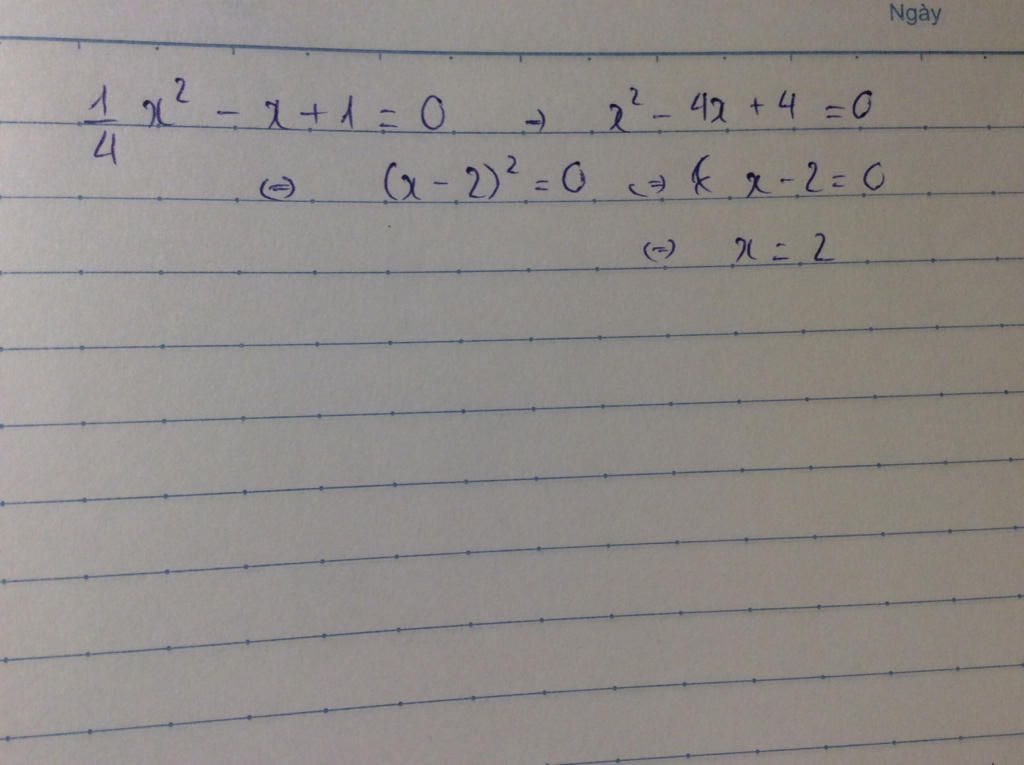 Ngày
1/4 x² - x + 1 = 0 → x² - 4x + 4 = 0
⇔ (x - 2)² = 0 ⇔ x - 2 = 0
⇔ x = 2